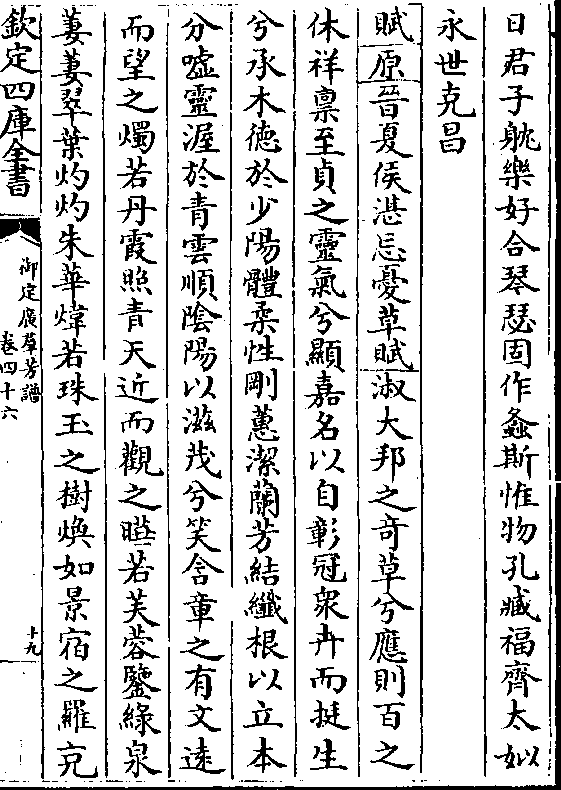 日君子躭樂好合琴瑟固作螽斯惟物孔臧福齊太姒
永世克昌
賦原晉夏侯湛忘憂草賦淑大邦之奇草兮應則百之
休祥稟至貞之靈氣兮顯嘉名以自彰冠衆卉而挺生
兮承木徳於少陽體柔性剛蕙潔蘭芳結纖根以立本
分噓靈渥於青雲順陰陽以滋茂兮笑含章之有文逺
而望之燭若丹霞照青天近而觀之曄若芙蓉鑒綠泉
萋萋翠葉灼灼朱華煒若珠玉之樹煥如景宿之羅充
欽定四庫全書
御定廣羣芳譜
卷四十六
十九